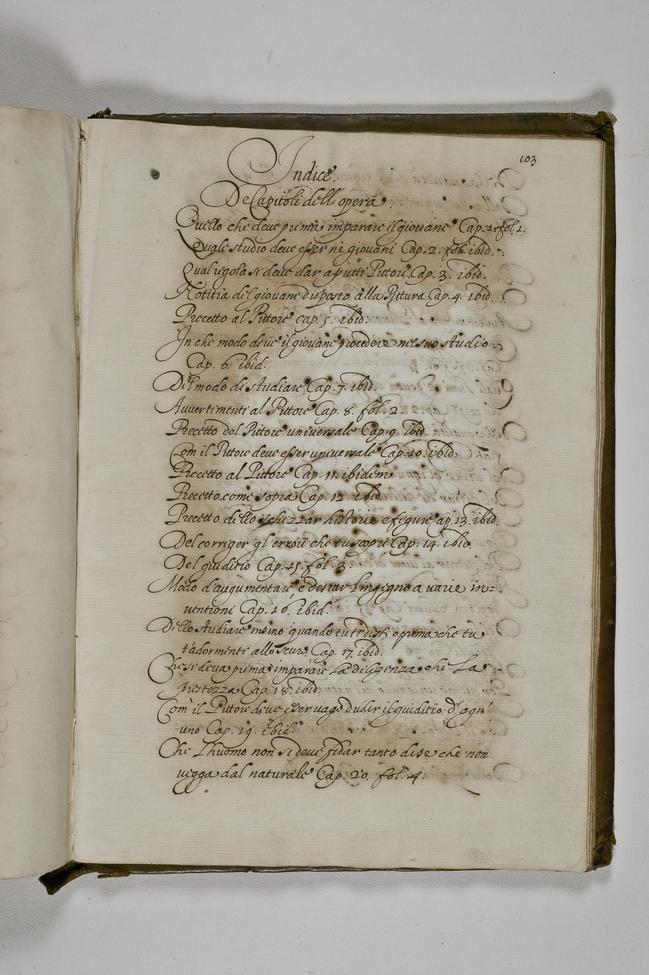 103
Indice.
De Capitoli dell'opera
Quello che deue prima imparare il giouane Cap. 1. fol. 1.
Quale studio deue esser ne giouani Cap. 2. fol. ibid.
Qual regola si deue dar a putti Pittori Cap. 3. ibid.
Notitia del giouane disposto alla Pittura Cap. 4. ibid.
Precetto al Pittore cap. 5. ibid.
In che modo deue il giouane procedere nel suo studio
Cap. 6. ibid.
Del modo di studiare Cap. 7. ibid.
Auuertimenti al Pittore Cap. 8. fol. 2
Precetto del Pittore uniuersale Cap. 9. ibid.
Com il Pittore deue esser uniuersale Cap. 10. ibid.
Precetto al Pittore Cap. 11. ibidem
Precetto come sopra Cap. 12. ibid.
Precetto dello schizzar historie e figure ap. 13. ibid.
Del corriger gl'errori che tu scopri Cap. 14. ibid.
Del giuditio Cap. 15. fol. 3.
Modo d'augumentare e destar l'ingegno a varie in=
uentioni Cap. 16. ibid.
Dello studiare insino quando tu ti desti o prima che tu
t'adormenti allo scuro Cap. 17. ibid.
Che si deua prima imparare La diligenza che La
prestezza Cap. 18. ibid.
Com'il Pittore deue esser uago d'uder il giuditio d'ogn'
uno Cap. 19. ibid.
Che l'huomo non si deue fidar tanto di se che non
uegga dal naturale Cap. 20. fol. 4.